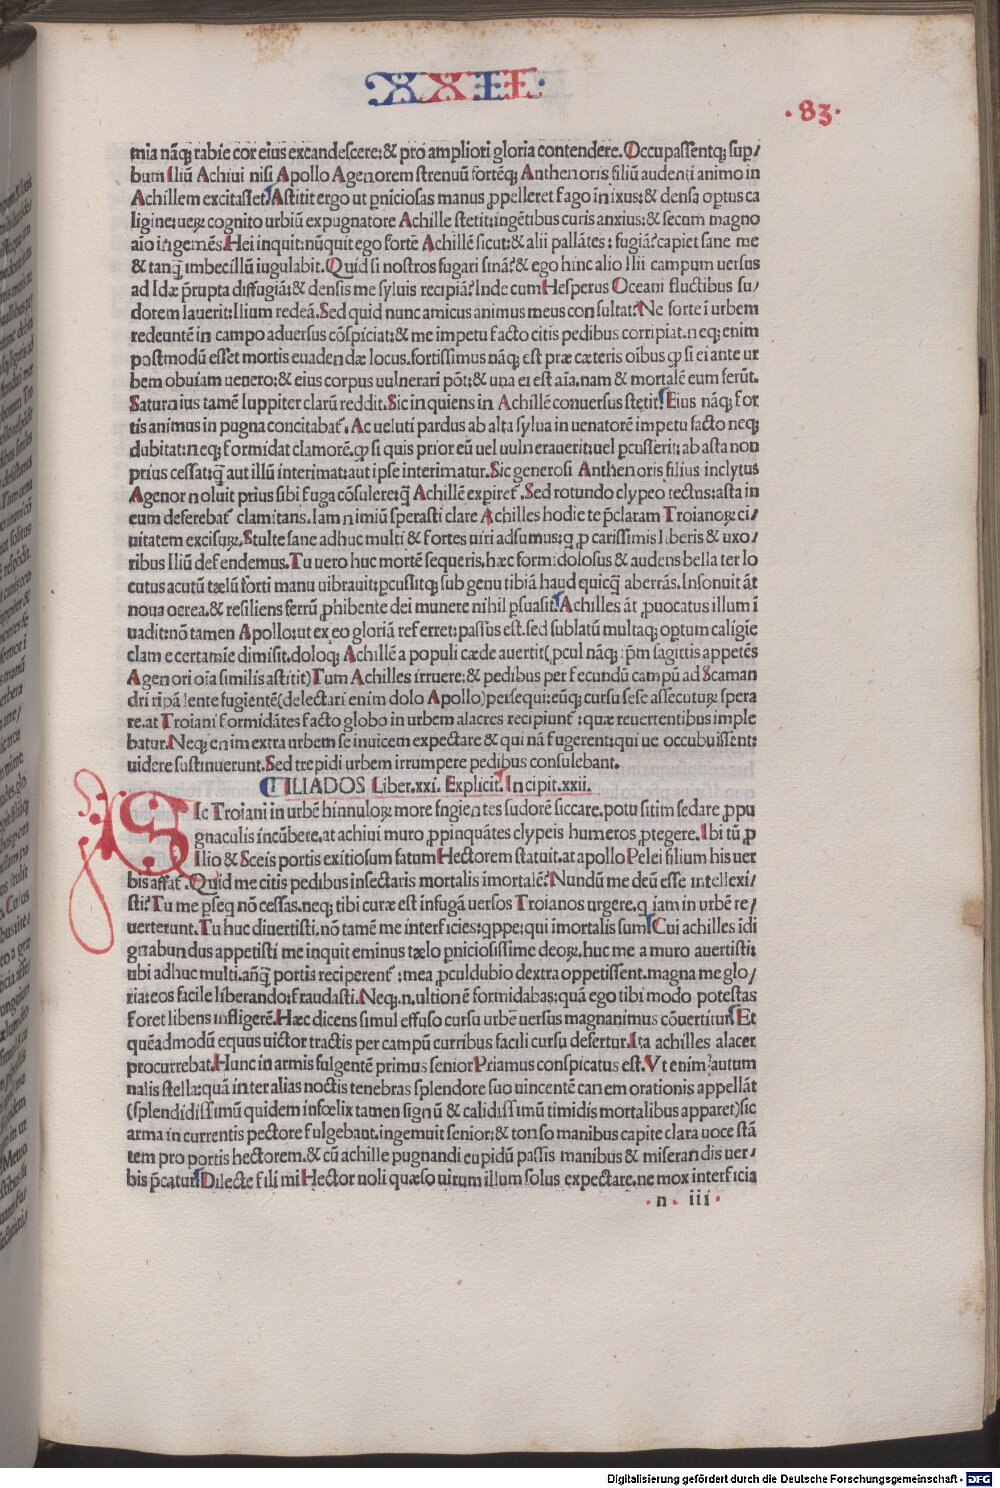 XXII
.83.
mia nãq; rabie cor eius excandescere: & pro ampliori gloria contendere. Occupassentq; sup/
bum Iliũ Achiui nisi Apollo Agenorem strenuũ fortẽq; Anthenoris filiũ audenti animo in
Achillem excitasset. Astitit ergo ut ꝑniciosas manus ꝓpelleret fago inixus: & densa optus ca
ligine: ueꝝ cognito urbiũ expugnatore Achille stetit: ingẽtibus curis anxius: & secum magno
aĩo ingemẽs. Hei inquit: nũquit ego fortẽ Achillẽ sicut: & alii pallãtes: fugiã? capiet sane me
& tanq̃ imbecillũ iugulabit. Quid si nostros fugari sinã? & ego hinc alio Ilii campum uersus
ad Idæ p̃rupta diffugiã: & densis me syluis recipiã? Inde cum Hesperus Oceani fluctibus su/
dorem lauerit: Ilium redeã. Sed quid nunc amicus animus meus consultat: Ne forte ĩ urbem
redeuntẽ in campo aduersus cõspiciat: & me impetu facto citis pedibus corripiat. neq; enim
postmodũ esset mortis euadendæ locus. fortissimus nãq; est præ cæteris oĩbus ꝙ si ei ante ur
bem obuiam uenero: & eius corpus uulnerari põt: & una ei est aĩa. nam & mortalẽ eum ferũt.
Saturnius tamẽ Iuppiter clarũ reddit. Sic inquiens in Achillẽ conuersus stetit. Eius nãq; for
tis animus in pugna concitabat᷑. Ac ueluti pardus ab alta sylua in uenatorẽ impetu facto neq;
dubitat: neq; formidat clamorẽ. ꝙ si quis prior eũ uel uulnerauerit: uel ꝑcusserit: ab asta non
prius cessat: q̃ aut illũ interimat: aut ipse interimatur. Sic generosi Anthenoris filius inclytus
Agenor noluit prius sibi fuga cõsulere: q̃ Achillẽ expiret᷑. Sed rotundo clypeo tectus: asta in
eum deferebat᷑ clamitans. Iam nimiũ sperasti clare Achilles hodie te p̃claram Troianoꝝ ci/
uitatem excisuꝝ. Stulte sane adhuc multi & fortes uiri adsumus: q ꝓ carissimis liberis & uxo/
ribus Iliũ defendemus. Tu uero huc mortẽ sequeris. hæc formidolosus & audens bellater lo
cutus acutũ tælũ forti manu uibrauit: ꝑcussitq; sub genu tibiã haud quicq̃ aberrãs. Insonuit ãt
noua ocrea. & resiliens ferrũ ꝓhibente dei munere nihil ꝑsuasit. Achilles ãt ꝓuocatus illum ĩ
uadit: nõ tamen Apollo: ut ex eo gloriã referret: passus est. sed sublatũ multaq; optum caligĩe
clam e certamĩe dimisit. doloq; Achillẽ a populi cæde auertit (ꝓcul nãq; ip̃m sagittis appetẽs
Agenori oĩa similis astitit) Tum Achilles irruere: & pedibus per fecundũ campũ ad Scaman
dri ripã lente fugientẽ (delectari enim dolo Apollo) persequi: eũq; cursu sese assecutuꝝ spera
re. at Troiani formidãtes facto globo in urbem alacres recipiunt᷑: quæ reuertentibus imple
batur. Neq; enim extra urbem se inuicem expectare & qui nã fugerent: qui ue occubuissent:
uidere sustinuerunt. Sed trepidi urbem irrumpere pedibus consulebant.
ILIADOS Liber. xxi. Explicit. Incipit. xxii.
SIc Troiani in urbẽ hinnuloꝝ more fugientes sudorẽ siccare. potu sitim sedare ꝓpu
gnaculis incũbere. at achiui muro ꝓpinquãtes clypeis humeros ꝓtegere. Ibi tũ ꝓ
Ilio & Sceis portis exitiosum fatum Hectorem statuit. at apollo Pelei filium his uer
bis affat᷑. Quid me citis pedibus insectaris mortalis ĩmortalẽ? Nundũ me deũ esse intellexi/
sti? Tu me ꝑseq nõ cessas. neq; tibi curæ est in fugã uersos Troianos urgere. q iam in urbẽ re/
uerterunt. Tu huc diuertisti. nõ tamẽ me interficies: qppe: qui ĩmortalis sum. Cui achilles ĩdi
gnabundus appetisti me inquit eminus tælo ꝑniciosissime deoꝝ. huc me a muro auertisti:
ubi adhuc multi. añq̃ portis reciperent᷑: mea ꝓculdubio dextra oppetissent. magna me glo/
ria: eos facile liberando: fraudasti. Neq;. n. ultionẽ formidabas: quã ego tibi modo potestas
foret libens infligerẽ. Hæc dicens simul effuso cursu urbẽ uersus magnanimus cõuertitur. Et
quẽadmodũ equus uictor tractis per campũ curribus facili cursu defertur. Ita achilles alacer
procurrebat. Hunc in armis fulgentẽ primus senior Priamus conspicatus est. Vt enim autum
nalis stella: quã inter alias noctis tenebras splendore suo uincentẽ canem orationis appellãt
(splendidissimũ quidem infœlix tamen signũ & calidissimũ timidis mortalibus apparet) sic
arma in currentis pectore fulgebant. ingemuit senior: & tonso manibus capite clara uoce stã
tem pro portis hectorem. & cũ achille pugnandi cupidũ passis manibus & miserandis uer/
bis p̃catur. Dilecte fili mi Hector noli quæso uirum illum solus expectare. ne mox interficia
. n . iii .
Digitalisierung gefördert durch die Deutsche Forschungsgemeinschaft - DFG